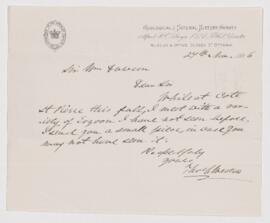 GEOLOGICAL & NATURAL HISTORY SURVEY
MUSEUM & OFFICE, SUSSEX ST OTTAWA
27th Nov.
Sir Wm Dawson
Dear Sir
Whilst at Cote
St Pierre this fall, I met with a vari-
ety of Eozoon I have not seen before.
I send you a small piece in case you
may not have seen it.
Respectfully
yours